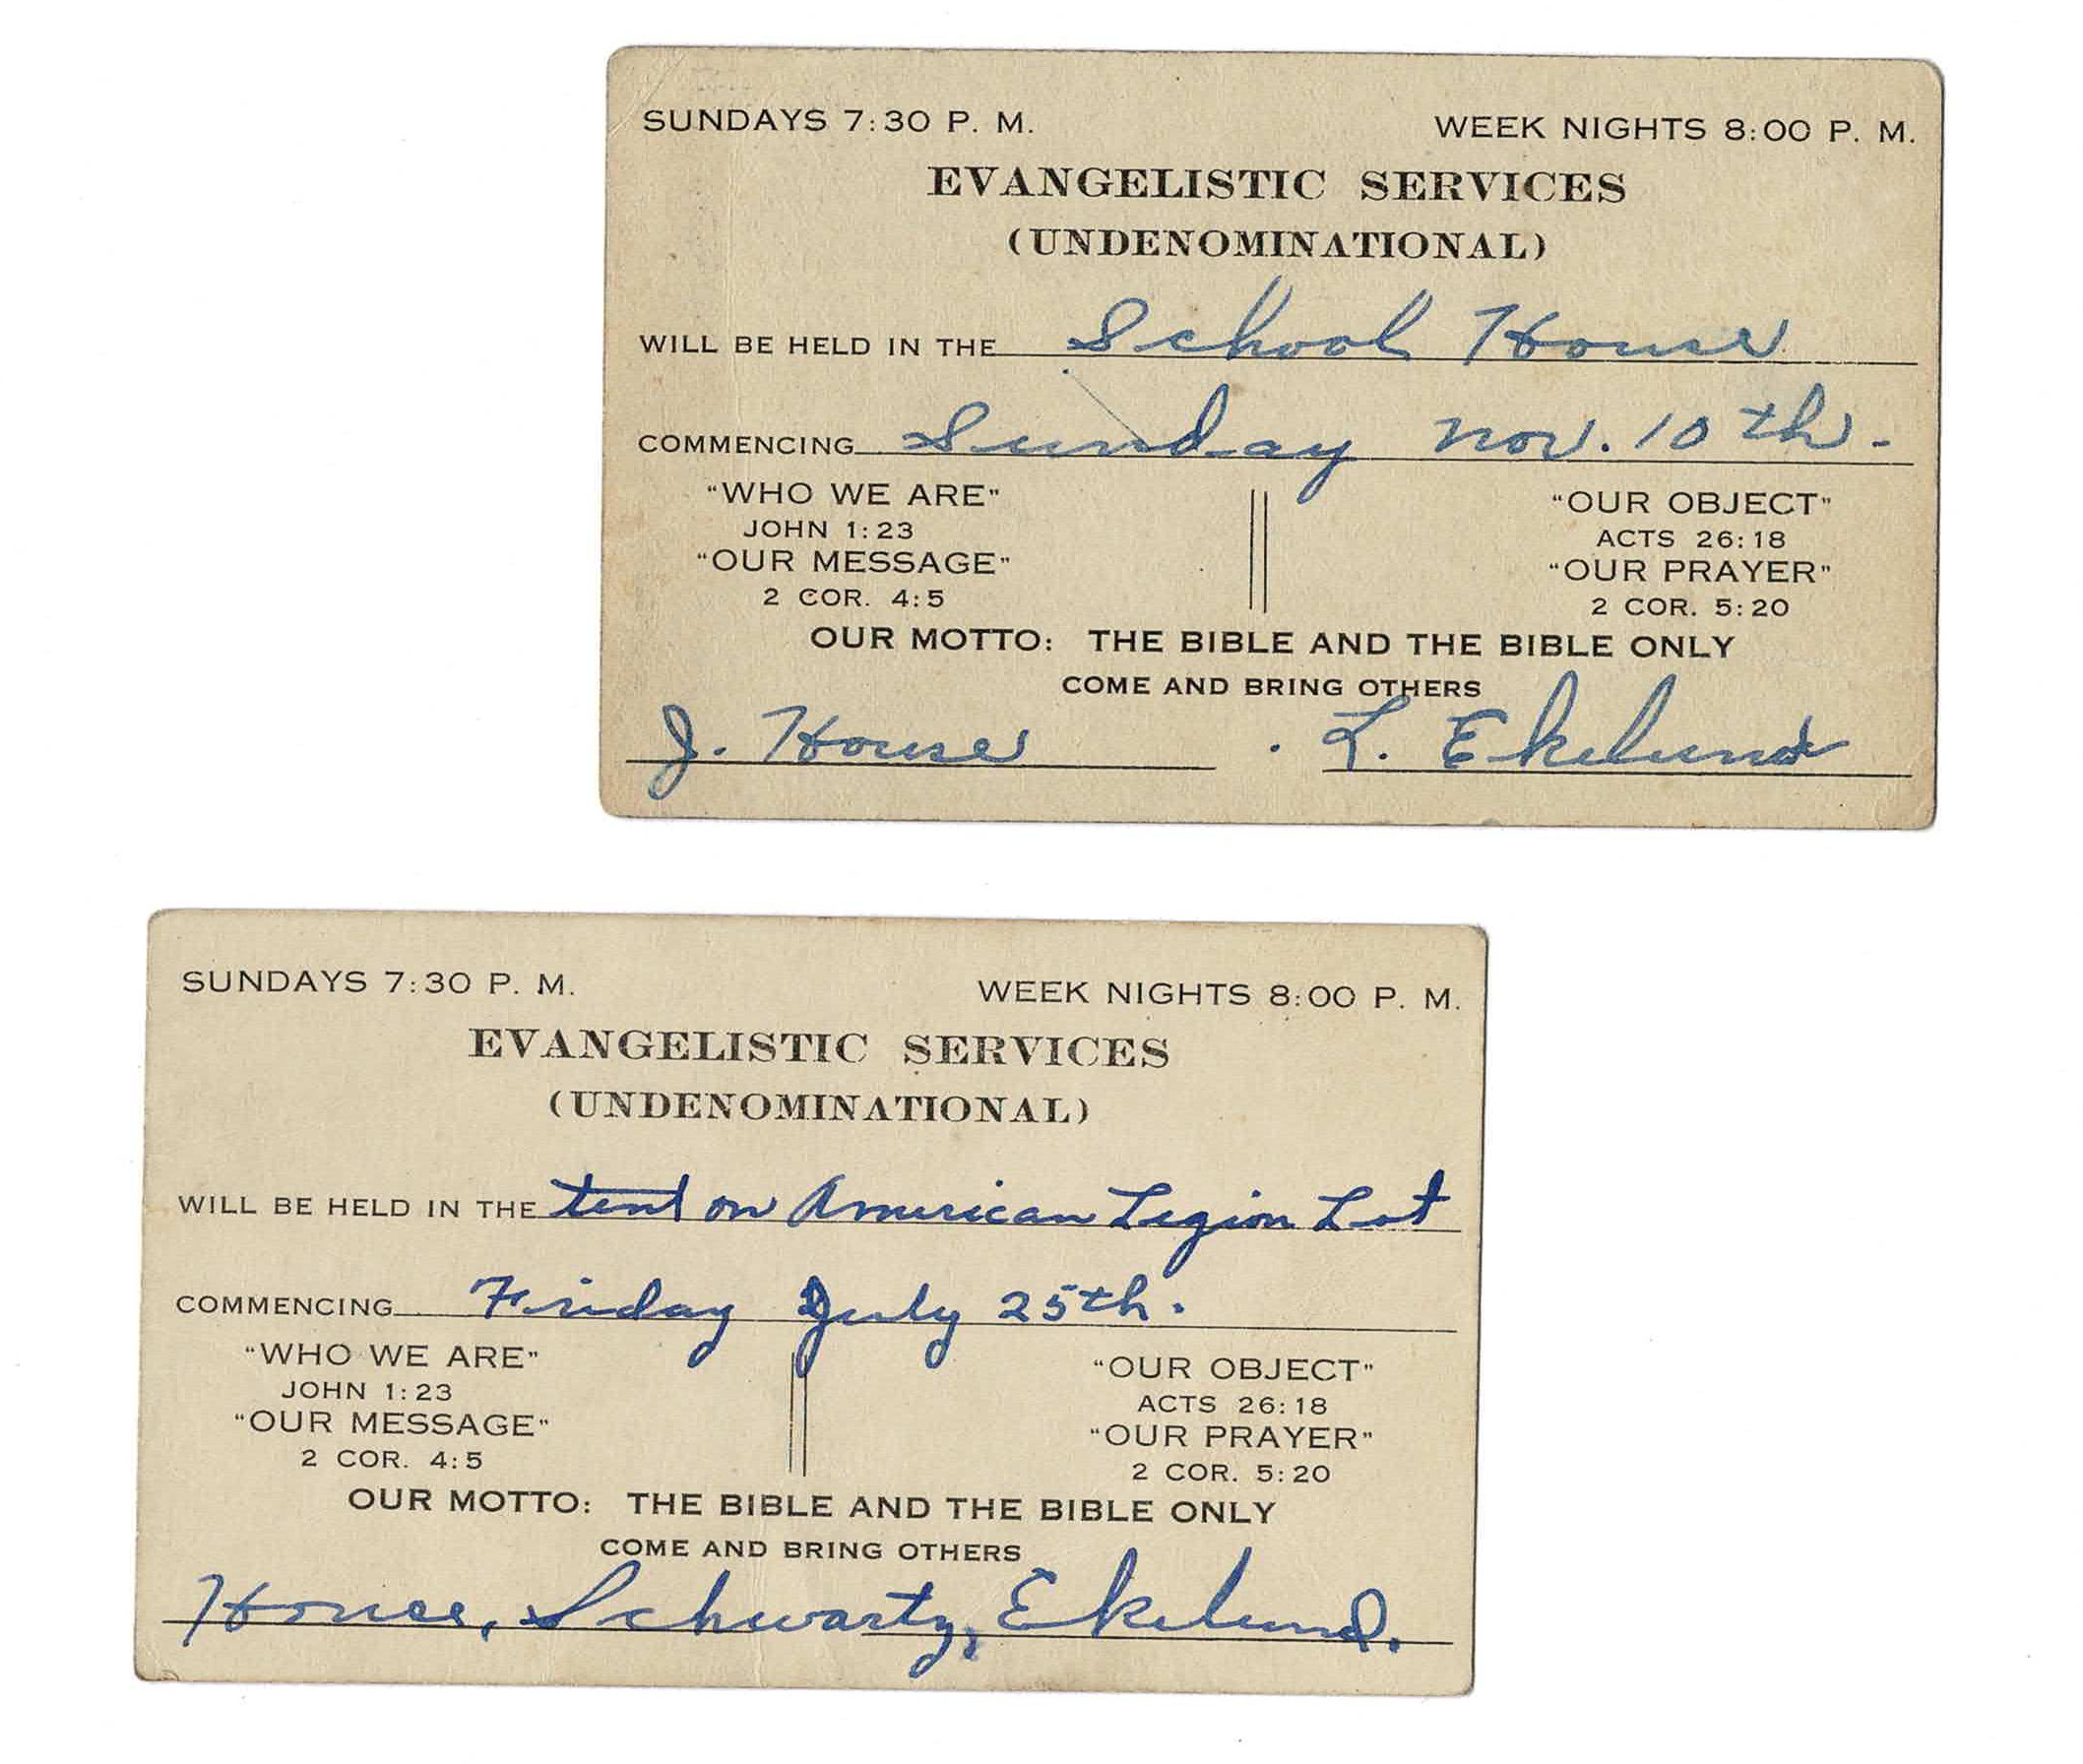 SUNDAYS 7:30 P. M. WEEK NIGHTS 8:00 P. M.
EVANGELISTIC SERVICES
(UNDENOMINATIONAL)
WILL BE HELD IN THE School House
COMMENCING Sunday Nov. 10th.
"WHO WE ARE" "OUR OBJECT"
JOHN 1:23 ACTS 26:18
"OUR MESSAGE" "OUR PRAYER"
2 COR. 4:5 2 COR. 5:20
OUR MOTTO: THE BIBLE AND THE BIBLE ONLY
COME AND BRING OTHERS
J. House L. Ekelund
SUNDAYS 7:30 P. M. WEEK NIGHTS 8:00 P. M.
EVANGELISTIC SERVICES
(UNDENOMINATIONAL)
WILL BE HELD IN THE tent on American Legion Lot
COMMENCING Friday July 25th.
"WHO WE ARE" "OUR OBJECT"
JOHN 1:23 ACTS 26:18
"OUR MESSAGE" "OUR PRAYER"
2 COR. 4:5 2 COR. 5:20
OUR MOTTO: THE BIBLE AND THE BIBLE ONLY
COME AND BRING OTHERS
House, Schwartz, Ekelund.